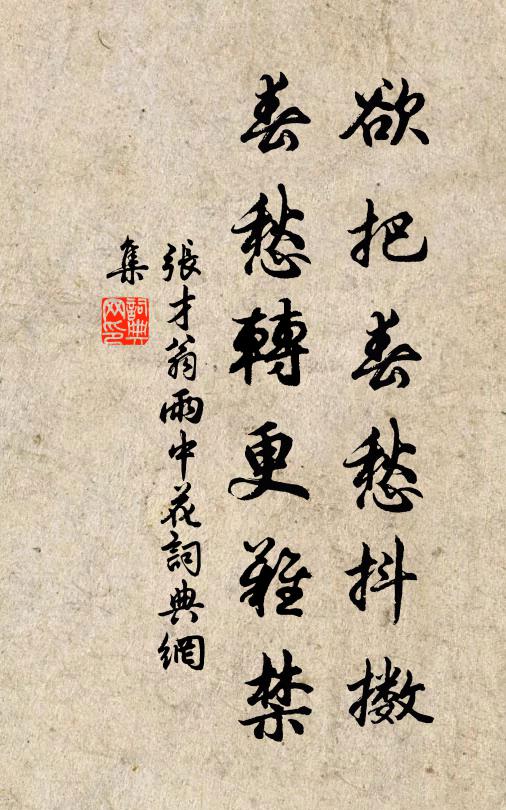 欲把春愁抖擻
春愁轉更難禁
張才翁雨中花詞典網
集
詞典網印